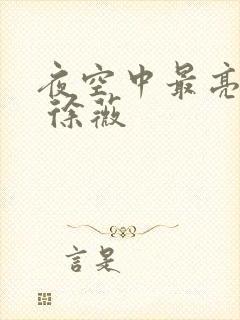 夜空中最亮
徐薇
言是